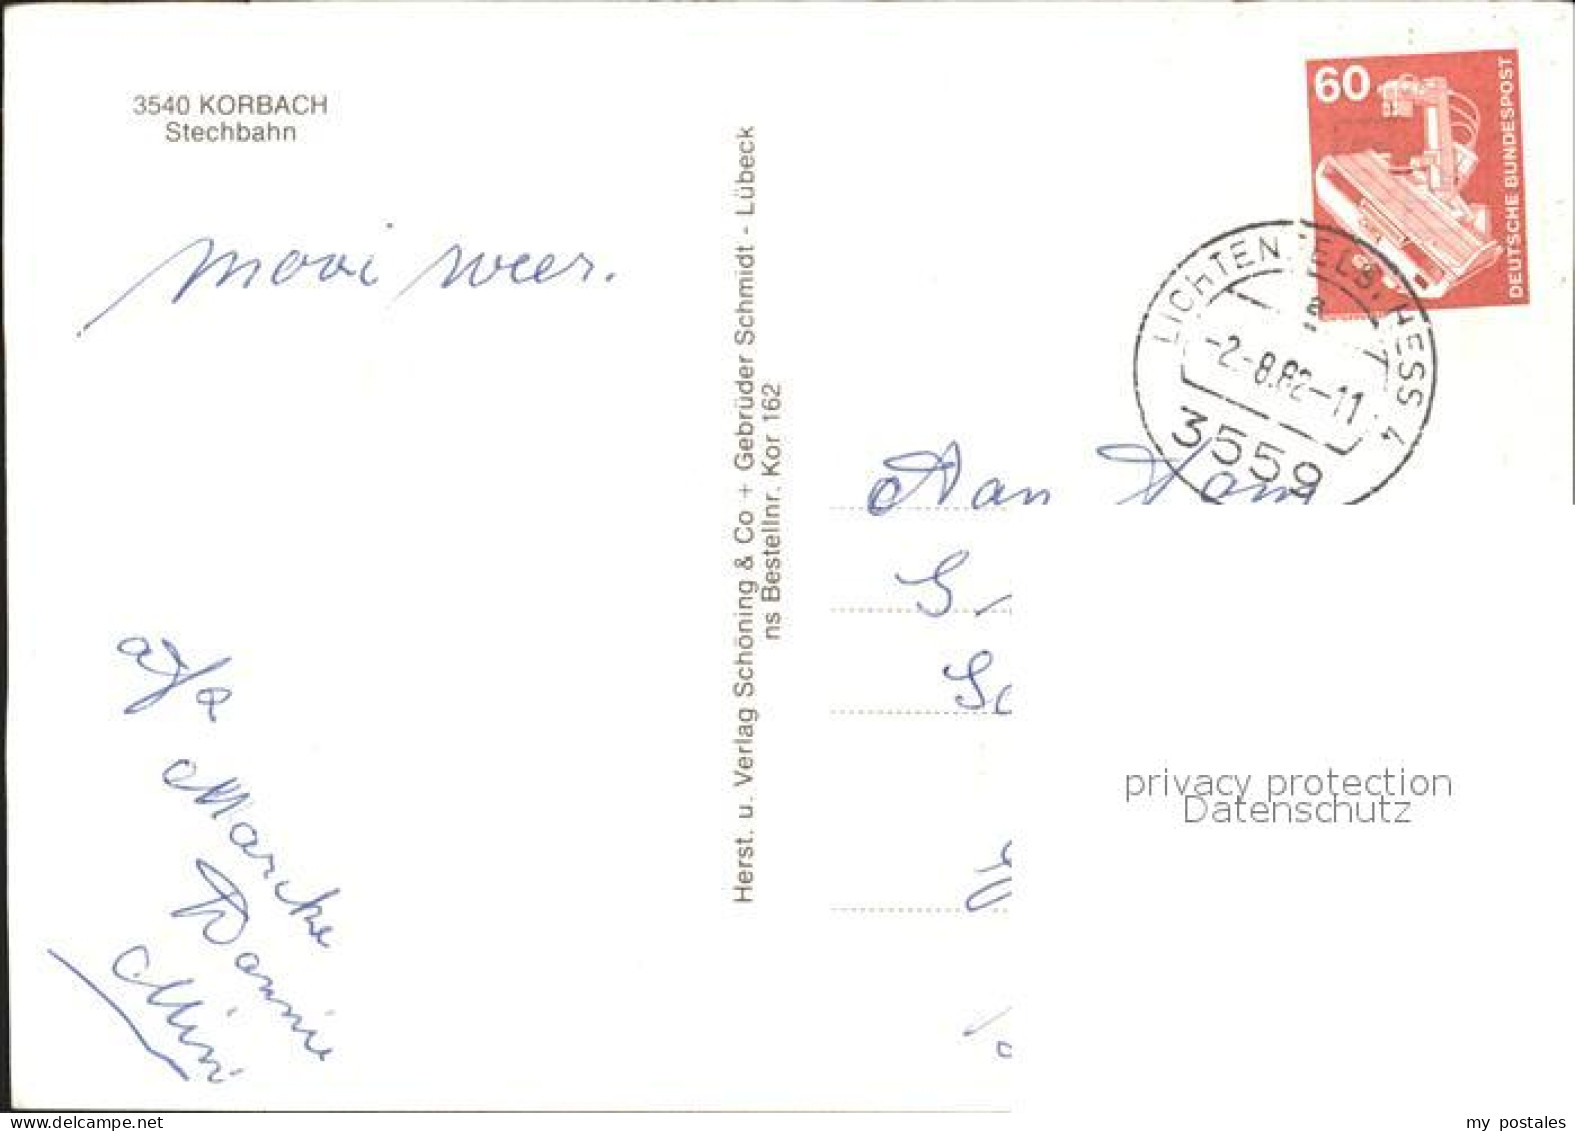 3540 KORBACH
Stechbahn
mooi weer.
Herst. u. Verlag Schöning & Co + Gebrüder Schmidt - Lübeck
ns Bestellnr. Kor 162
60
DEUTSCHE BUNDESPOST
LICHTENFELS, HESS 4
a
-2.-8.82-11
3559
Aan Fam
S
Marcke
Dannie
Mini
privacy protection
Datenschutz
www.delcampe.net
my postales